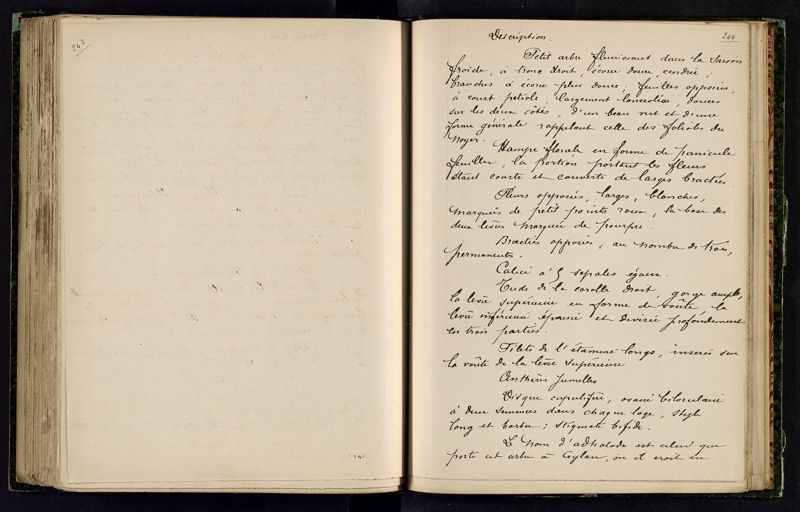 243
244
Description.
Petit arbre fleurissant dans la saison
froide, à tronc droit, écorce douce, cendrée;
branches à écorce plus douce; feuilles opposées,
à court pétiole, largement lancéolées, douces
sur les deux côtés, d'un beau vert et d'une
forme générale rappelant celle des folioles du
Noyer.
Hampe florale en forme de panicule
feuillée, la portion portant les fleurs
étant courte et couverte de larges bractées.
Fleurs opposées, larges, blanches,
marquées de petits points roux, la base des
deux lèvres marquée de pourpre.
Bractées opposées, au nombre de trois,
permanentes.
Calice à 5 sépales égaux.
Tube de la corolle droit, gorge ample,
la lèvre supérieure en forme de voûte, la
lèvre inférieure épaisse et divisée profondément
en trois parties.
Filets de l'étamine longs, insérés sur
la voûte de la lèvre supérieure
Anthères jumelles
Disque cupuliforme, ovaire biloculaire
à deux semences dans chaque loge, style
long et barbu; stigmate bifide.
Le nom d'adhatoda est celui que
porte cet arbre à Ceylan, où il croît en